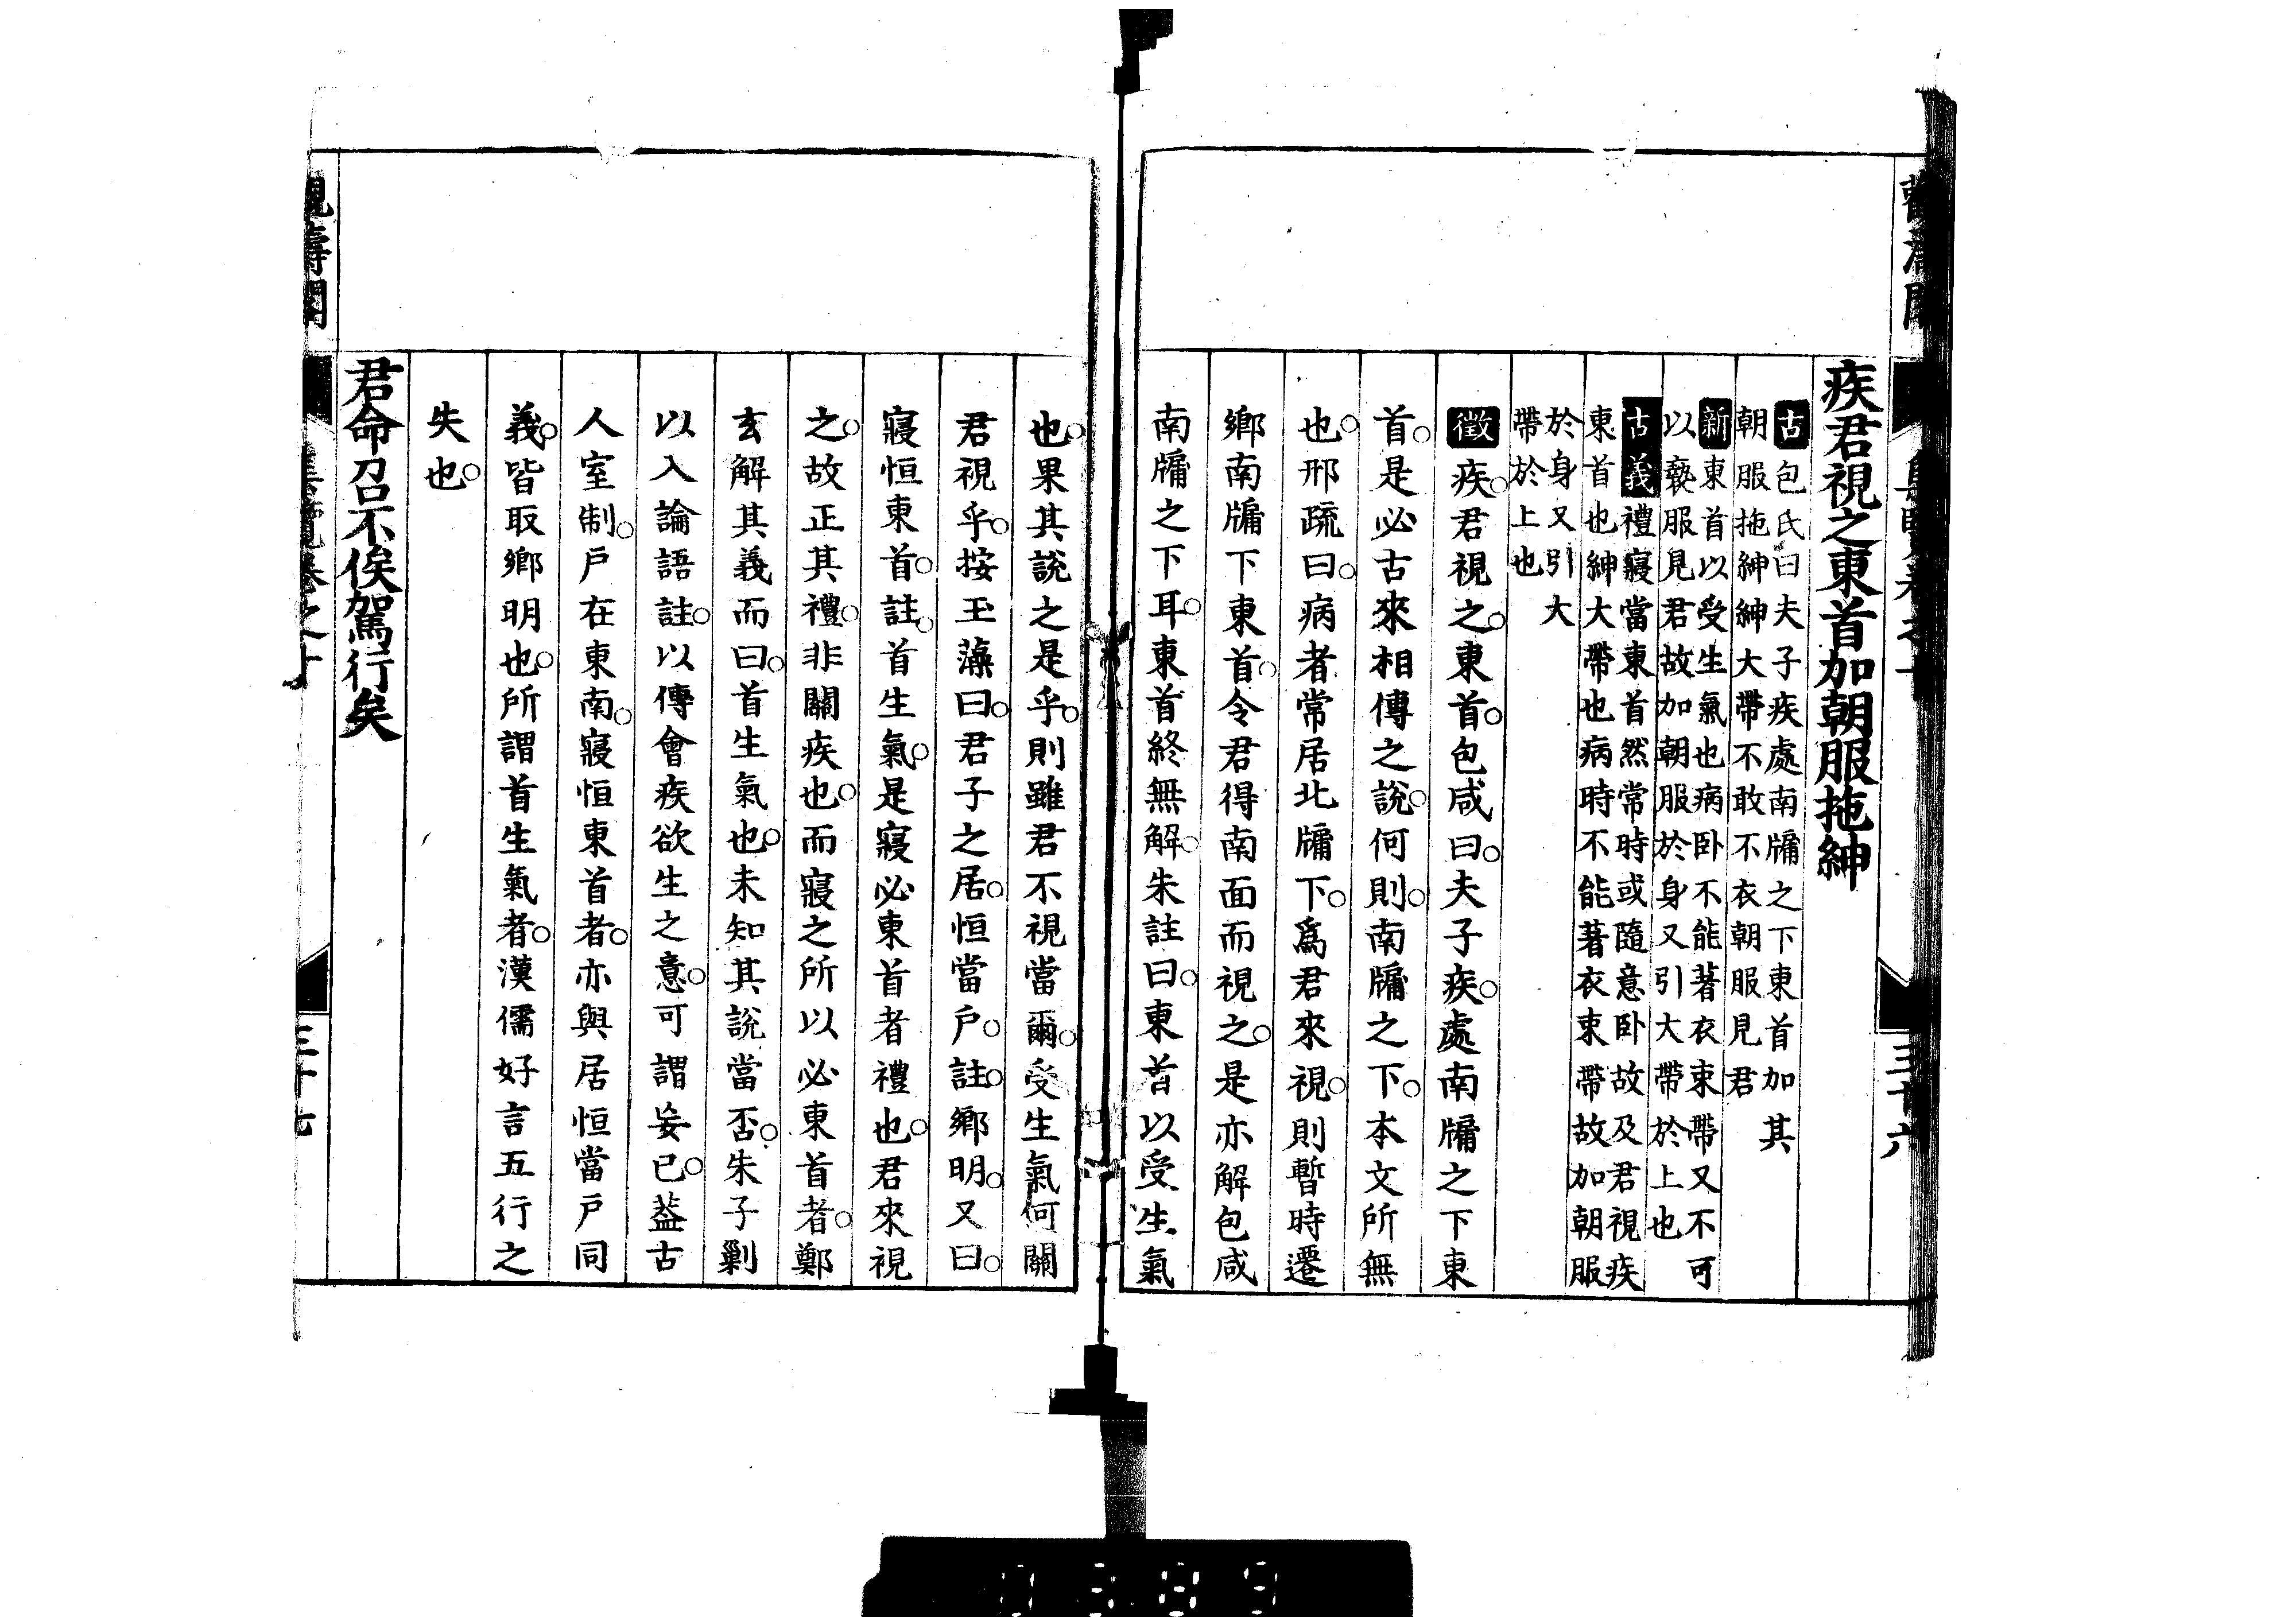 疾君視之東首加朝服拖紳
古包氏曰夫子疾處南牖之下東首加其
朝服拖紳紳大帶不敢不衣朝服見君
新東首以受生氣也病卧不能著衣束帶又不可
以褻服見君故加朝服於身又引大帶於上也
古義禮寢當東首然常時或隨意卧故及君視疾
東首也紳大帶也病時不能著衣束帶故加朝服
於身又引大
帶於上也
徵疾○君視之○東首○包咸曰○夫子疾○處南牖之下東
首○是必古來相傳之說○何則○南牖之下○本文所無
也○邢疏曰○病者常居北牖下○爲君來視○則暫時遷
鄉南牖下東首○令君得南面而視之○是亦解包咸
南牖之下耳○東首終無解○朱註曰○東首以受生氣
也○果其說之是乎○則雖君不視當爾○受生氣何關
君視乎○按玉藻曰○君子之居○恒當戶○註○鄉明○又曰○
寢恒東首○註○首生氣○是寢必東首者禮也○君來視
之○故正其禮○非關疾也○而寢之所以必東首者○鄭
玄解其義而曰○首生氣也○未知其說當否○朱子剿
以入論語註○以傳會疾欲生之意○可謂妄已○蓋古
人室制○戶在東南○寢恒東首者○亦與居恒當戶同
義○皆取鄉明也○所謂首生氣者○漢儒好言五行之
失也○
君命召不俟駕行矣